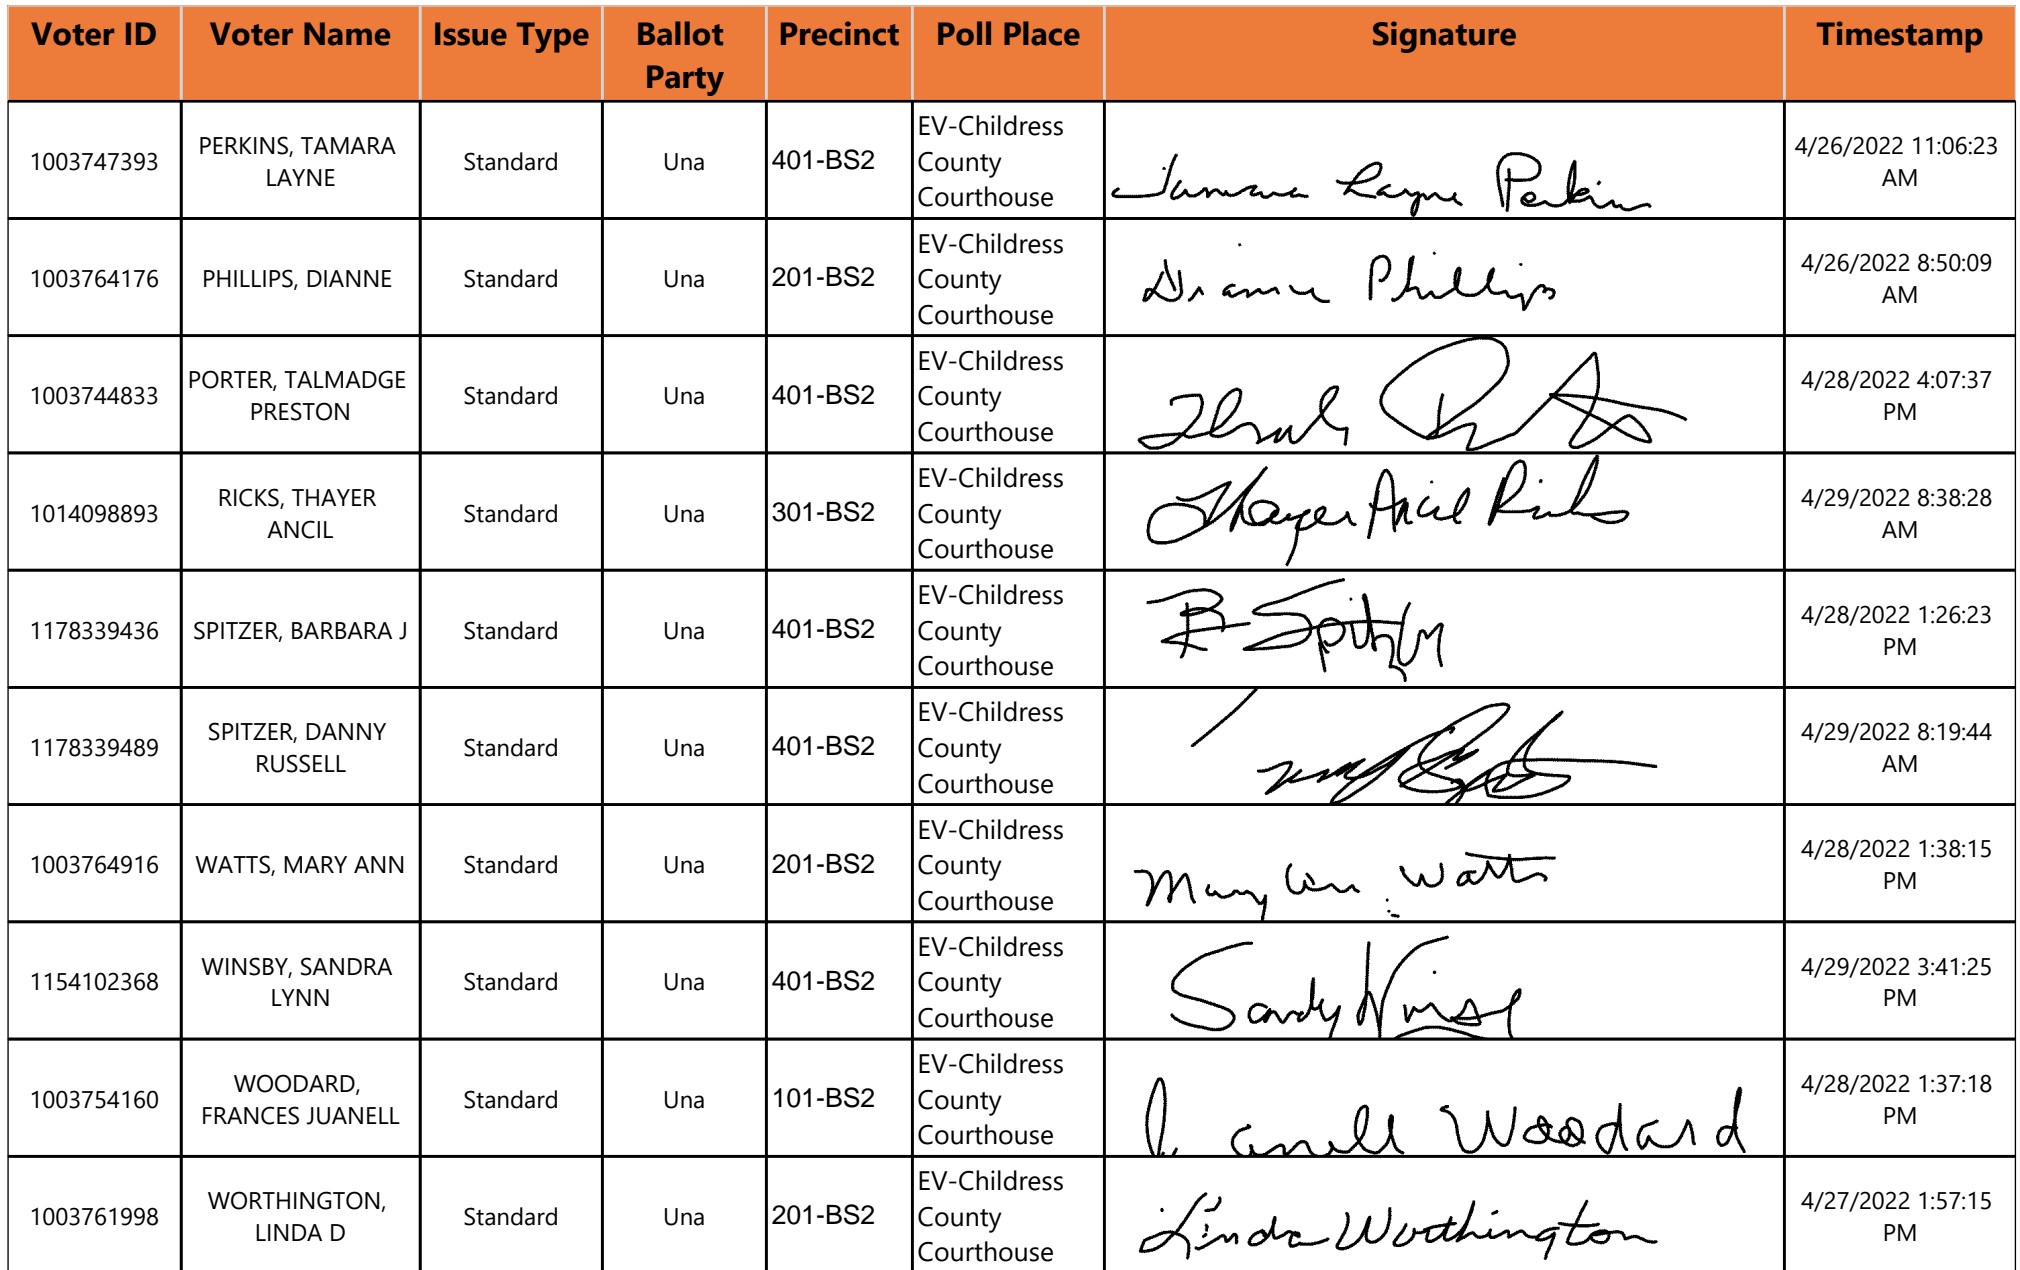 Voter ID Voter Name Issue Type Ballot Party Precinct Poll Place Signature Timestamp
1003747393 PERKINS, TAMARA LAYNE Standard Una 401-BS2 EV-Childress County Courthouse Tamara Layne Perkins 4/26/2022 11:06:23 AM
1003764176 PHILLIPS, DIANNE Standard Una 201-BS2 EV-Childress County Courthouse Dianne Phillips 4/26/2022 8:50:09 AM
1003744833 PORTER, TALMADGE PRESTON Standard Una 401-BS2 EV-Childress County Courthouse 4/28/2022 4:07:37 PM
1014098893 RICKS, THAYER ANCIL Standard Una 301-BS2 EV-Childress County Courthouse Thayer Ancil Ricks 4/29/2022 8:38:28 AM
1178339436 SPITZER, BARBARA J Standard Una 401-BS2 EV-Childress County Courthouse B Spitzer 4/28/2022 1:26:23 PM
1178339489 SPITZER, DANNY RUSSELL Standard Una 401-BS2 EV-Childress County Courthouse 4/29/2022 8:19:44 AM
1003764916 WATTS, MARY ANN Standard Una 201-BS2 EV-Childress County Courthouse Mary Ann Watts 4/28/2022 1:38:15 PM
1154102368 WINSBY, SANDRA LYNN Standard Una 401-BS2 EV-Childress County Courthouse Sandy Winsby 4/29/2022 3:41:25 PM
1003754160 WOODARD, FRANCES JUANELL Standard Una 101-BS2 EV-Childress County Courthouse Woodard 4/28/2022 1:37:18 PM
1003761998 WORTHINGTON, LINDA D Standard Una 201-BS2 EV-Childress County Courthouse Linda Worthington 4/27/2022 1:57:15 PM